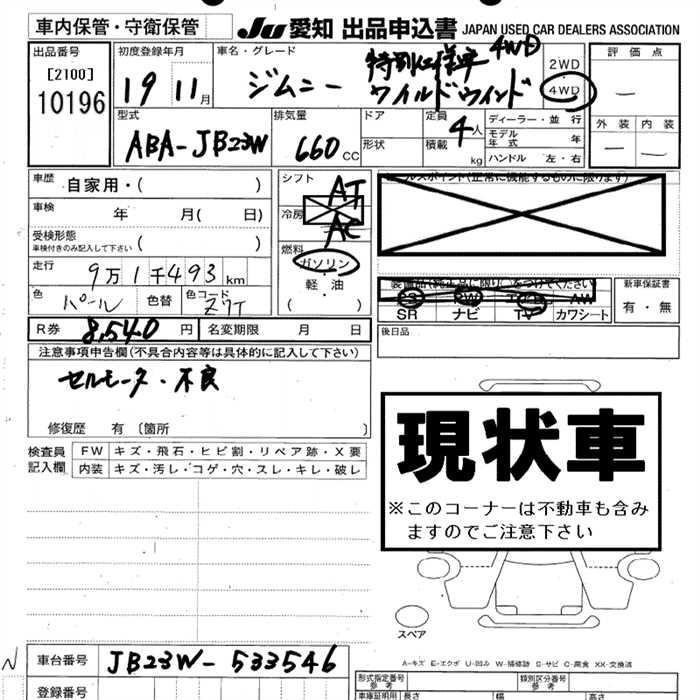 車内保管・守衛保管 JU 愛知 出品申込書 JAPAN USED CAR DEALERS ASSOCIATION
出品番号 [2100] 10196
初度登録年月 19 11月
車名・グレード ジムニー 特別仕様車 4WD
ワイルドウインド
2WD
4WD
評価点 —
外装 内装
— —
型式 ABA-JB23W
排気量 660 CC
ドア
形状
定員 4人
積載 kg
ディーラー・並行
モデル年式 年
ハンドル 左・右
車歴 自家用・( )
車検 年 月( 日)
受検形態 ( )
車検付きのみ記入して下さい
走行 9万1千493km
色 パール 色替 色コード Z7T
シフト AT
冷房 AC
燃料 ガソリン・軽油
( )
装備品(純正品に限り○をつけてください
PS PW AW
SR ナビ TV カワシート
新車保証書
有・無
後日品
R券 8,540円 名変期限 月 日
注意事項申告欄(不具合内容等は具体的に記入して下さい)
セルモータ・不良
修復歴 有〔箇所 〕
検査員記入欄
FW キズ・飛石・ヒビ割・リペア跡・X要
内装 キズ・汚レ・コゲ・穴・スレ・キレ・破レ
現状車
※このコーナーは不動車も含み
ますのでご注意下さい
スペア
A-キズ E-エクボ U-凹み W-補修跡 S-サビ C-腐食 XX-交換済
N 車台番号 JB23W-533546
形式指定番号 参考
類別区分番号 参考
車庫証明用 長さ 幅 高さ